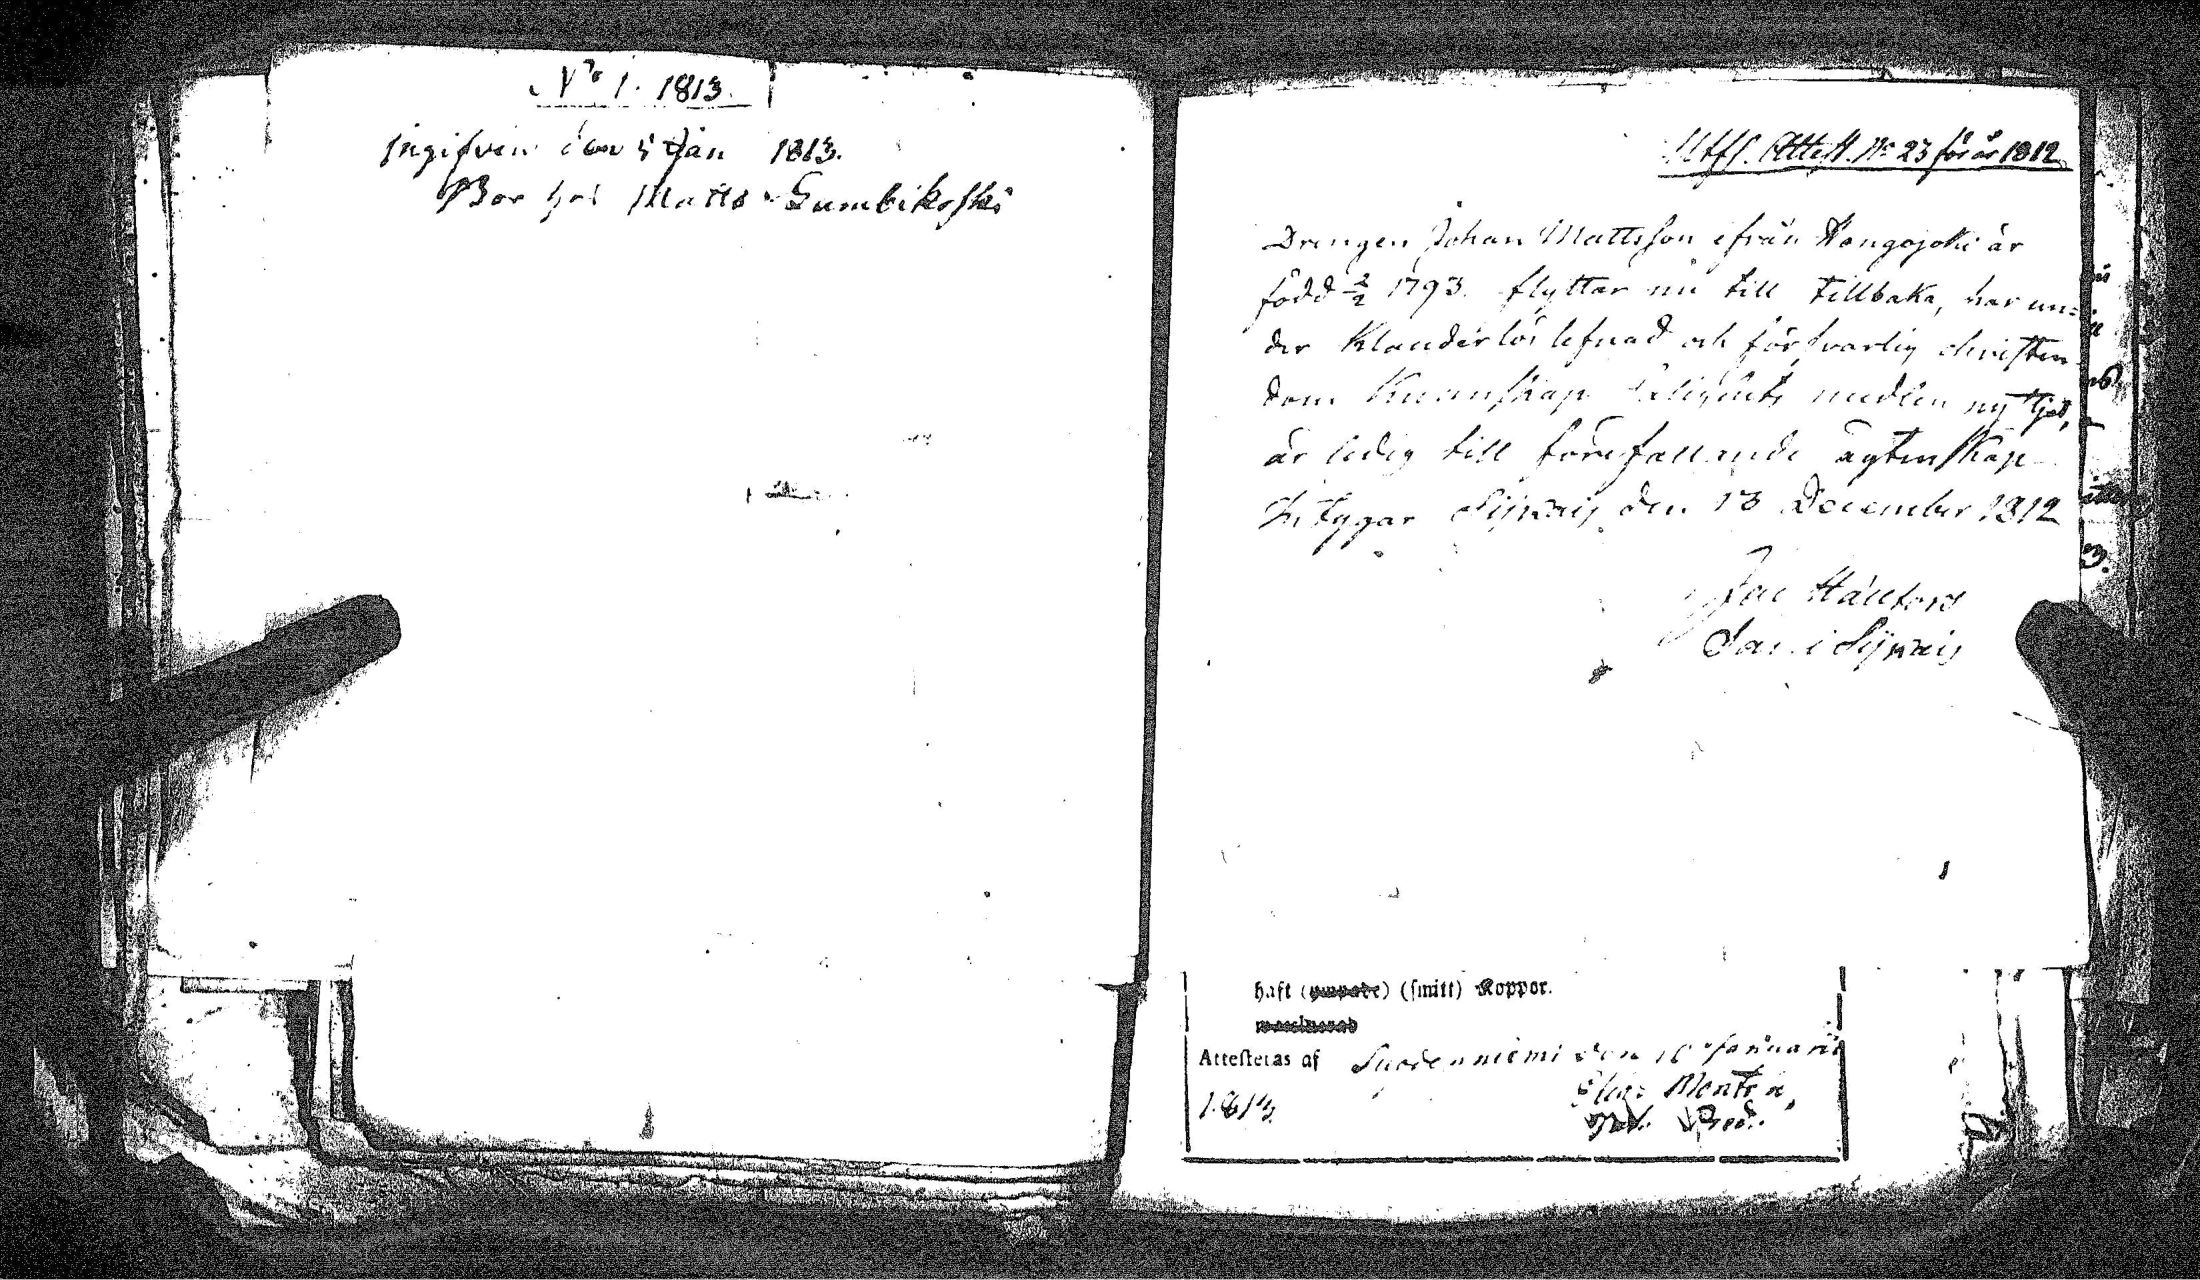 No 1. 1813.
Ingifven den 5 Jan 1813.
Bor hos Matts Lumbikoski
Utfl. Attest. No 23 för år 1812
Drengen Johan Mattsson ifrån Hongojoki är
född 2/2 1793. flyttar nu till tillbaka, har un-
der Klanderlös lefnad och försvarlig christen
doms Kunnskap Salighets medlen nyttjat,
är ledig till förefallande ägtenskap
Intygar den 13 December 1812
Jac
haft (smitt) Koppor.
Attesteras af Suodenniemi den Januarii
1813.